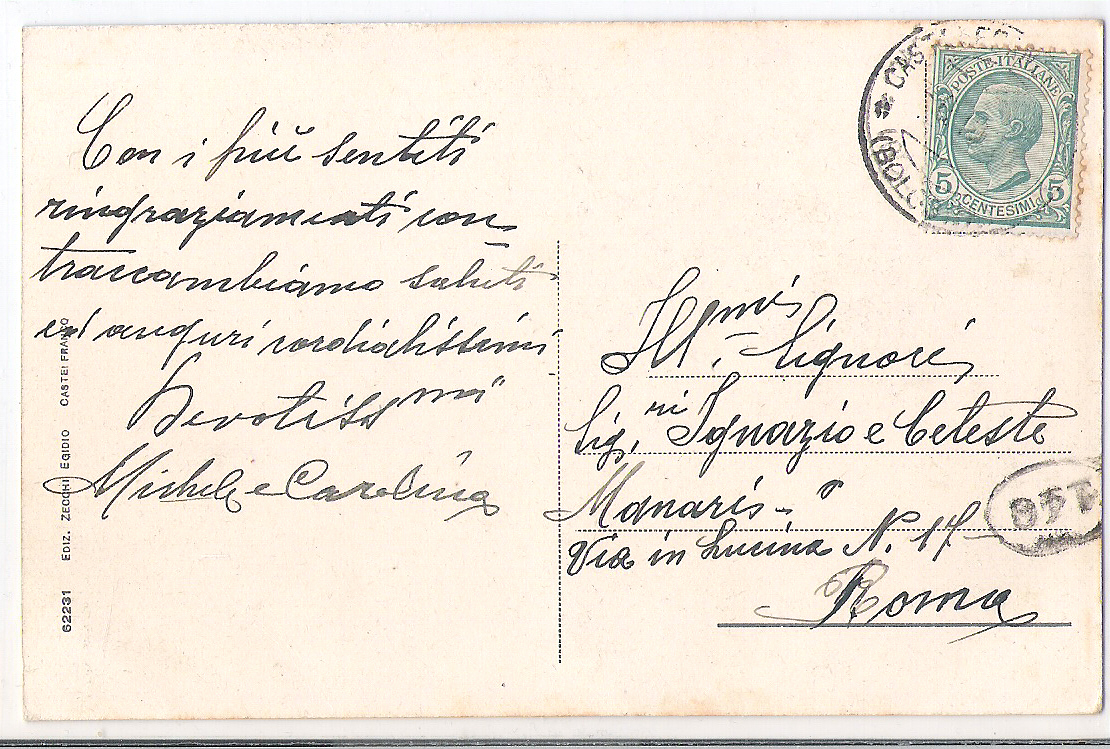 Con i più sentiti
ringraziamenti con
traccambiamo saluti
ed auguri cordialissimi
Devotiss mi
Michele e Carolina
62231 EDIZ. ZECCHI EGIDIO CASTELFRANCO
POSTE·ITALIANE
5 5
CENTESIMI
(BOLOGNA)
Ill.mi Signori
Sig.ri Ignazio e Celeste
Manaris
Via in Lucina N. 17
Roma